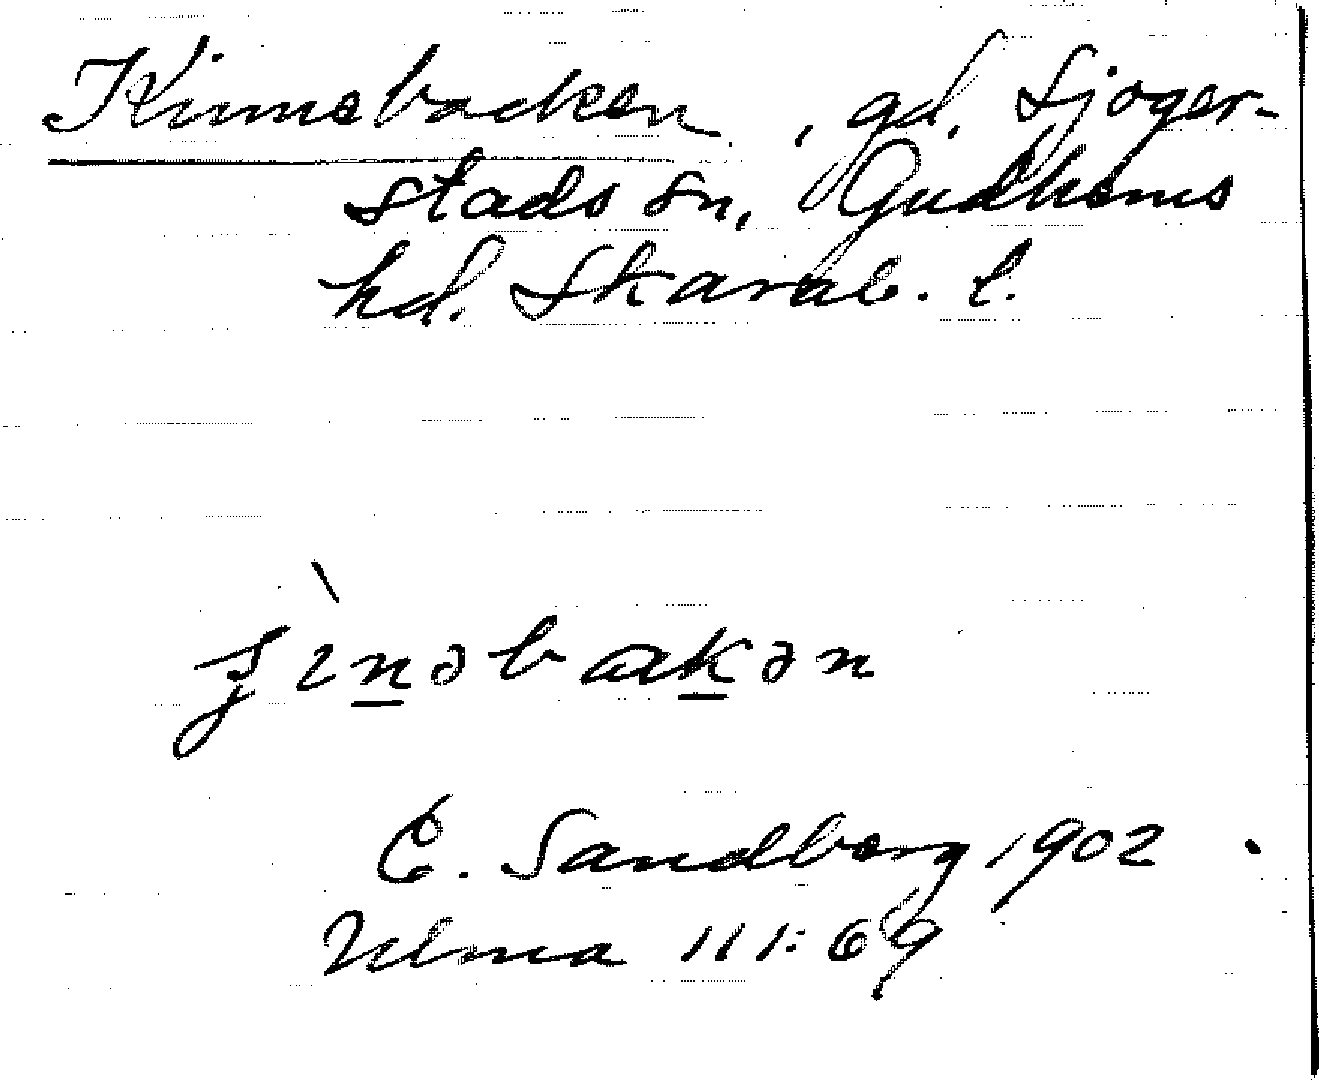 Kinnebacken, gd, Sjoger-
stads sn, Gudhems
hd. Skarab. l.
ʂìnəbakən
C. Sandberg 1902
Ulma 111:69